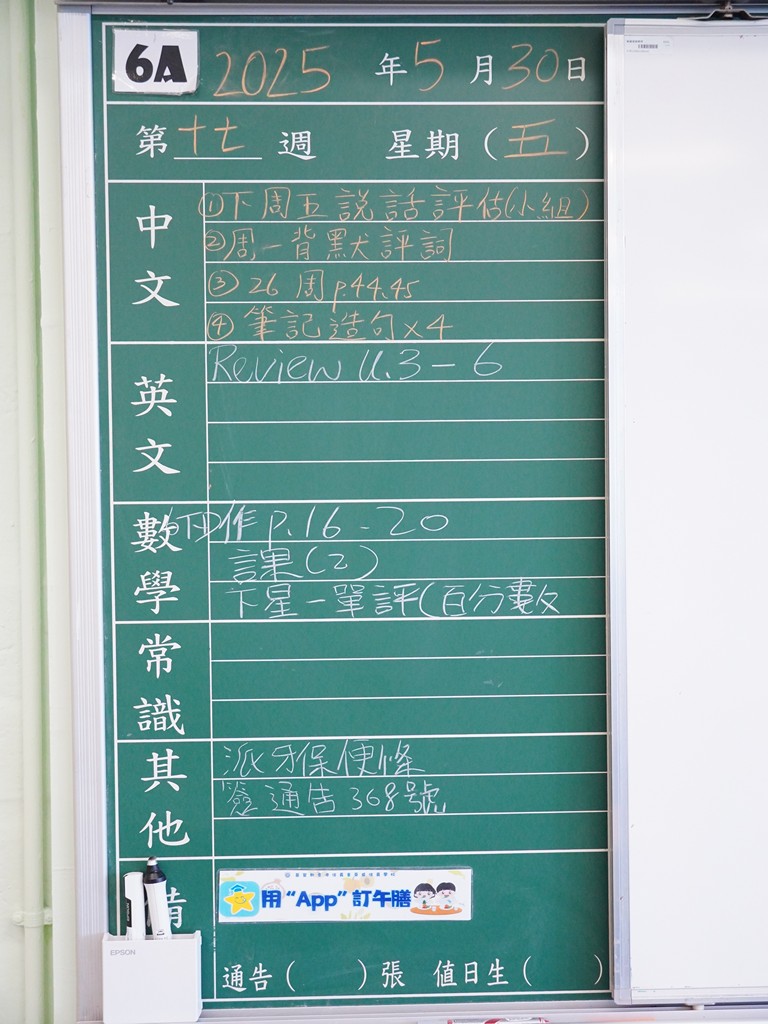 6A 2025 年 5 月 30 日
第 十七 週 星期 ( 五 )
中文
①下周五說話評估(小組)
②周一背默評詞
③ 26 周 p.44,45
④ 筆記造句×4
英文
Review U.3 - 6
數學
作 p.16 - 20
課(2)
下星一單評(百分數
常識
其他
派牙保便條
簽通告 368號
用 “App” 訂午膳
EPSON
通告 ( ) 張 值日生 ( )